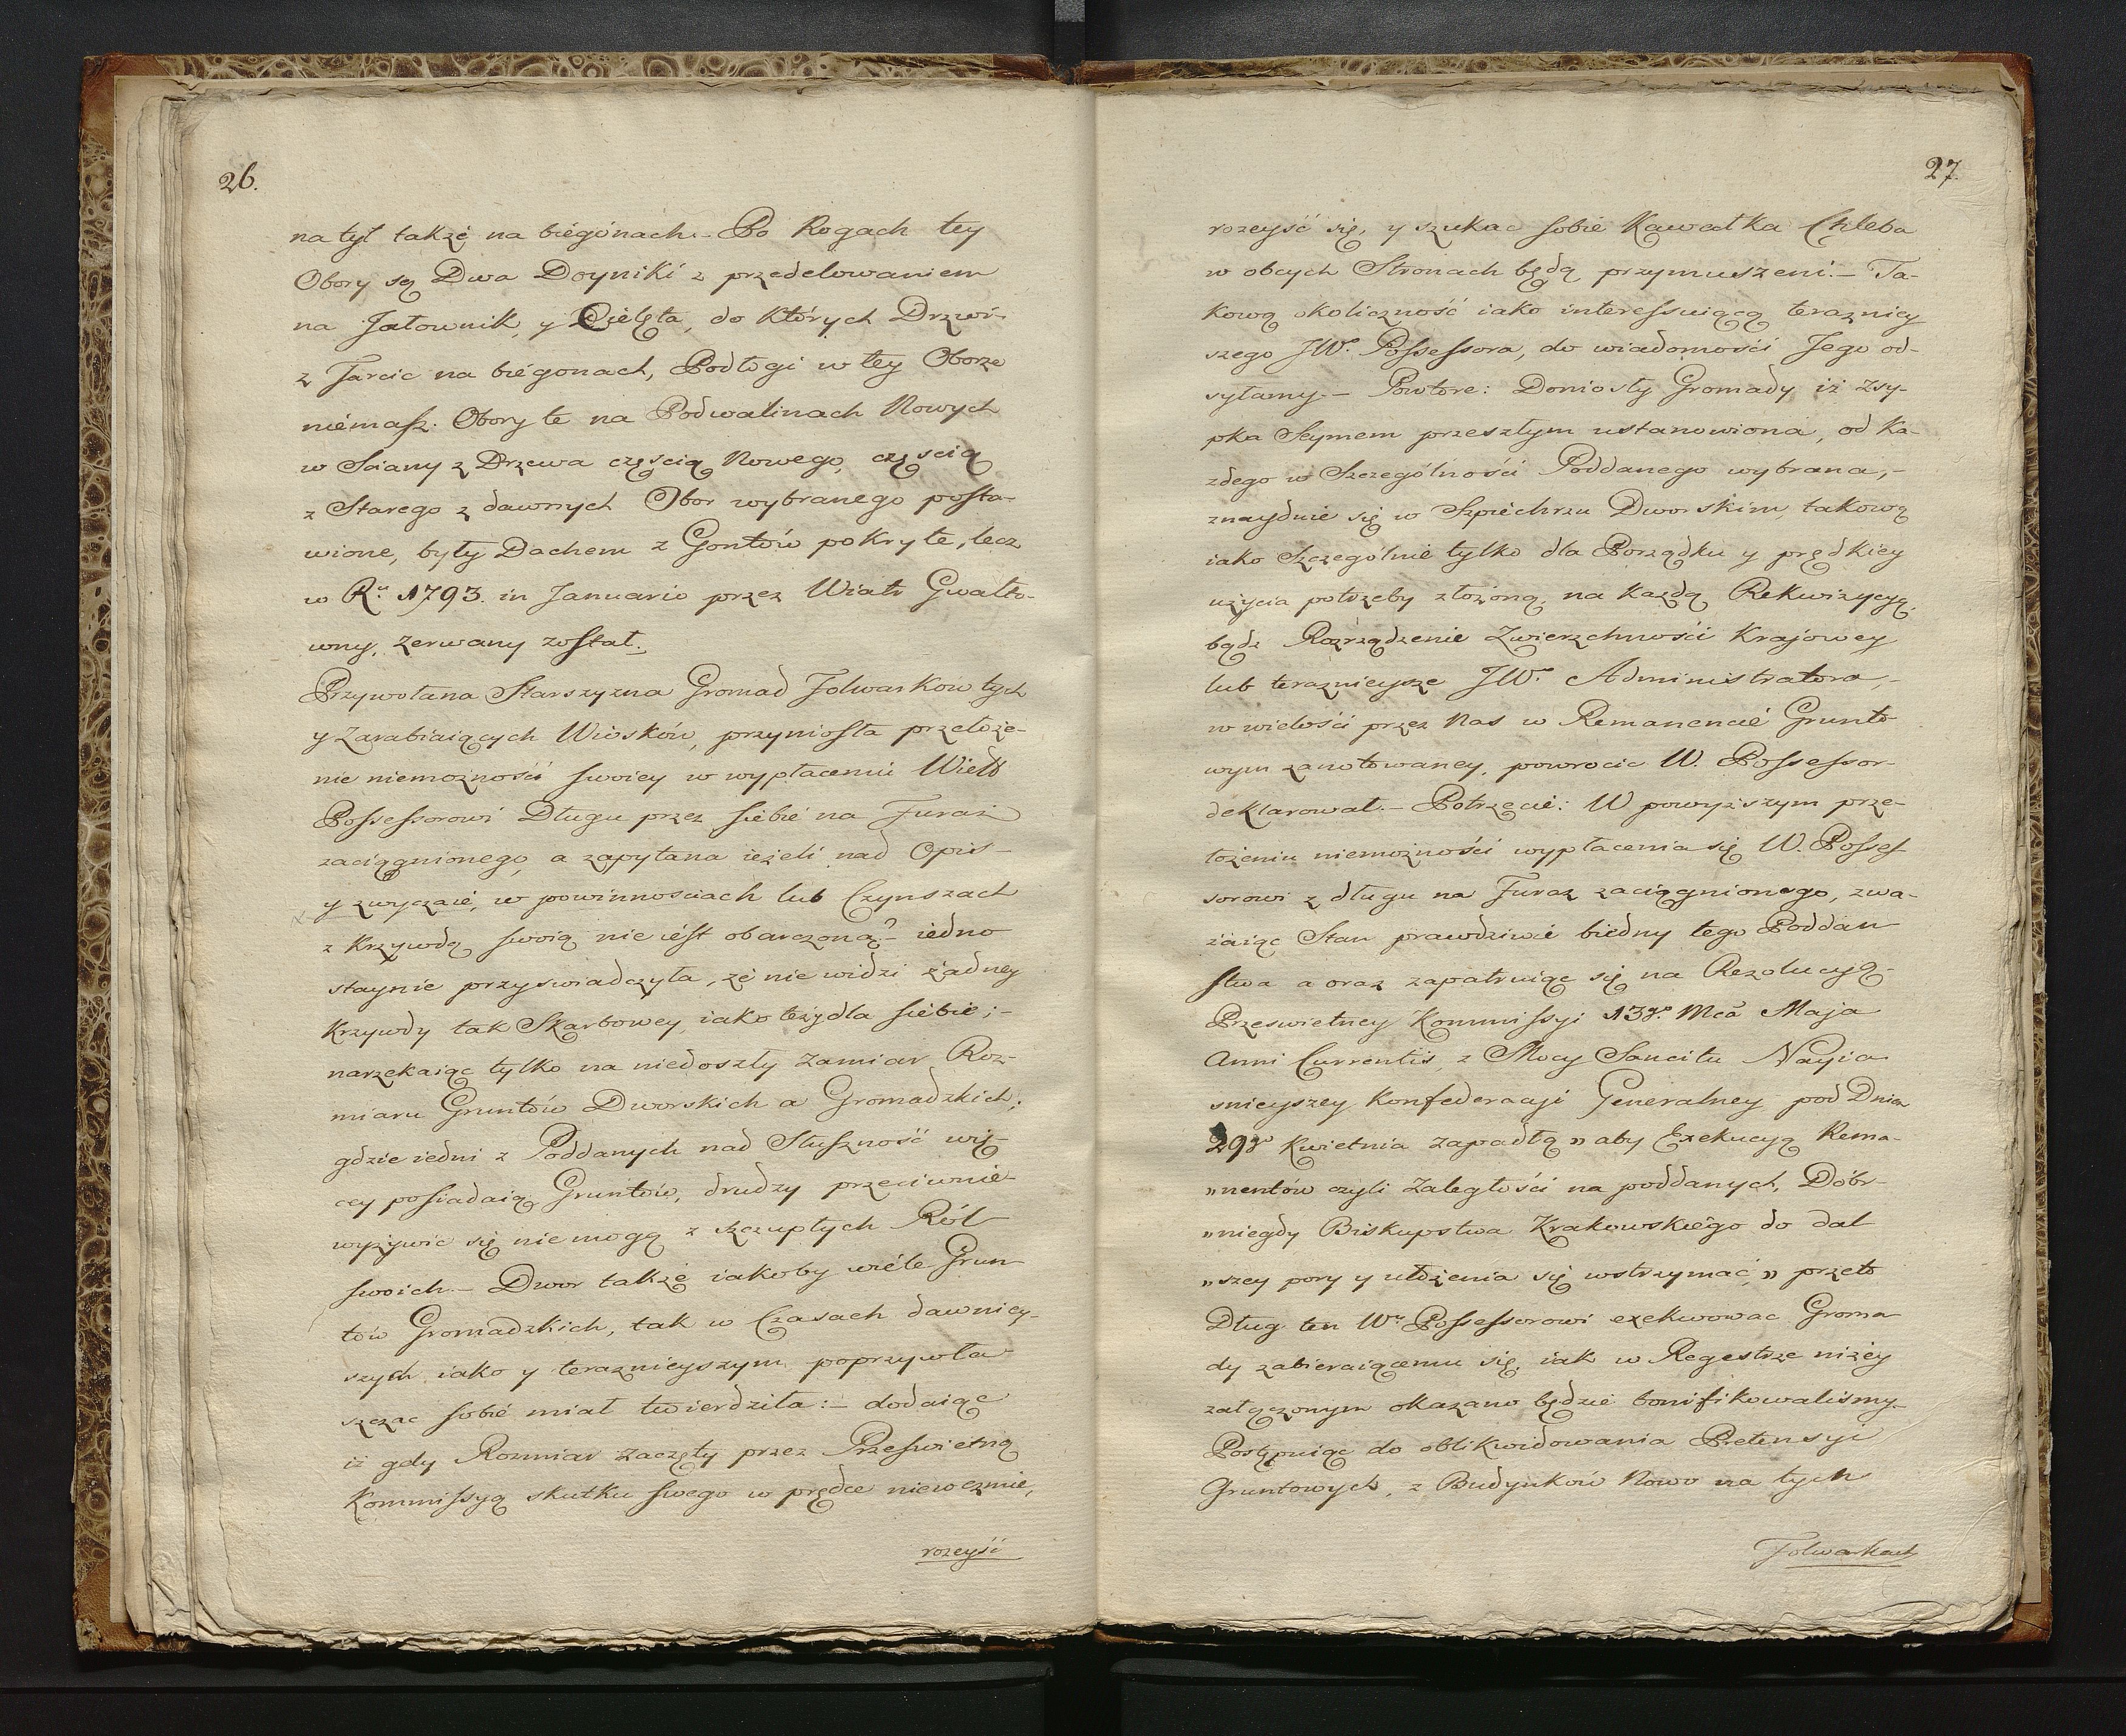 26.
na tył także na biégónach.– Po Rogach tey
Obory są Dwa Doyniki z przedelowaniem
na Jałownik, y Cielęta, do których Drzwi
z Tarcic na biégonach, Podłogi w tey Oborze
niémasz. Obory te na Podwalinach Nowych
w Sciany z Drzewa częścią Nowego, częscią
z Starego z dawnych Obor wybranego posta-
wione, były Dachem z Gontów pokryte, lecz
w Ru 1793. in Januario przez Wiatr Gwałto-
wny, zerwany został.
Przywołana Starszyzna Gromad Folwarkow tych
y Zarabiaiących Wiosków, przyniosła przełoże-
nie niemożności swoiey w wypłaceniu Wielo
Possessorowi Długu przez siebié na Furaż
zaciągnionego, a zapytana ieżeli nad Opis-
y zwyczaié, w powinnosciach lub Czynszach
z krzywdą swoią nie iést obarczoną?– iedno
staynie przyswiadczyła, że nie widzi żadney
Krzywdy tak Skarbowey, iako też y dla siebie;–
narzekaiąc tylko na niedoszły zamiar Roz-
miaru Gruntów Dworskich a Gromadzkich;
gdzie iedni z Poddanych nad Słuszność wię-
cey posiadaią Gruntów, drudzy przeciwnié
wyżywic się nie mogą z szczupłych Ról
swoich.– Dwor także iakoby wiéle Grun
tów Gromadzkich, tak w Czasach dawniey-
szych iako y teraznieyszym poprzywła-
szczac sobié miał twierdziła:– dodaiąc
iż gdy Rozmiar zaczęty przez Przeswietną
Kommissyą skutku swego w prędce nie wezmie,
rozeyść
27
rozeyść się, y szukac sobié Kawałka Chleba
w obcych Stronach będą przymuszeni.– Ta-
kową okoliczność iako interessuiącą teraźniey
szego JWo Possessora, do wiadomości Jego od-
syłamy.– Powtore: Doniosły Gromady iż Zsy-
pka Seymem przeszłym ustanowiona, od Ka-
żdego w Szczególności Poddanego wybrana,–
znayduie się w Szpichrzu Dworskim, takową
iako Szczególnié tylko dla Porządku y prędkiey
użycia potrzeby złożoną, na każdą Rekwizycyą,
bądz Rozrządzenie Zwierzchności Krajowey
lub teraznieysze JWo Administratora,–
w wielości przez Nas w Remanencié Grunto
wym zanotowaney, powrocic W. Possessor–
deklarował.– Potrzecié: W powyższym prze-
łożeniu niemożności wypłacenia się W. Posses
sorowi z długu na Furaz zaciągnionego, zwa-
żaiąc Stan prawdziwié biédny tego Poddań
stwa a oraz zapatruiąc się na Rezolucyą–
Przeswietney Kommissyi 13go Mca Maja
Anni Currentis, z Mocy Sancitu Nayia-
snieyszey Konfederacji Generalney pod Dniem
29go Kwietnia zapadłą „aby Exekucyą Rema-
„nentów czyli Zaległości na poddanych, Dóbr–
„niegdy Biskupstwa Krakowskiego do dal
„szey pory y ułożenia się wstrzymać,„ przeto
Dług ten Wu Possessorowi exekwowac Groma
dy zabieraiącemu się, iak w Regestrze niżey
załączonym okazano będzie bonifikowalismy.–
Postępuiąc do oblikwidowania Pretensyi
Gruntowych, z Budynków Nowo na tych
Folwarkach